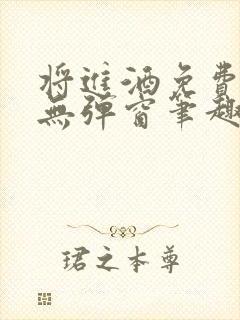 将进酒免费
无弹窗笔趣
珺之本尊